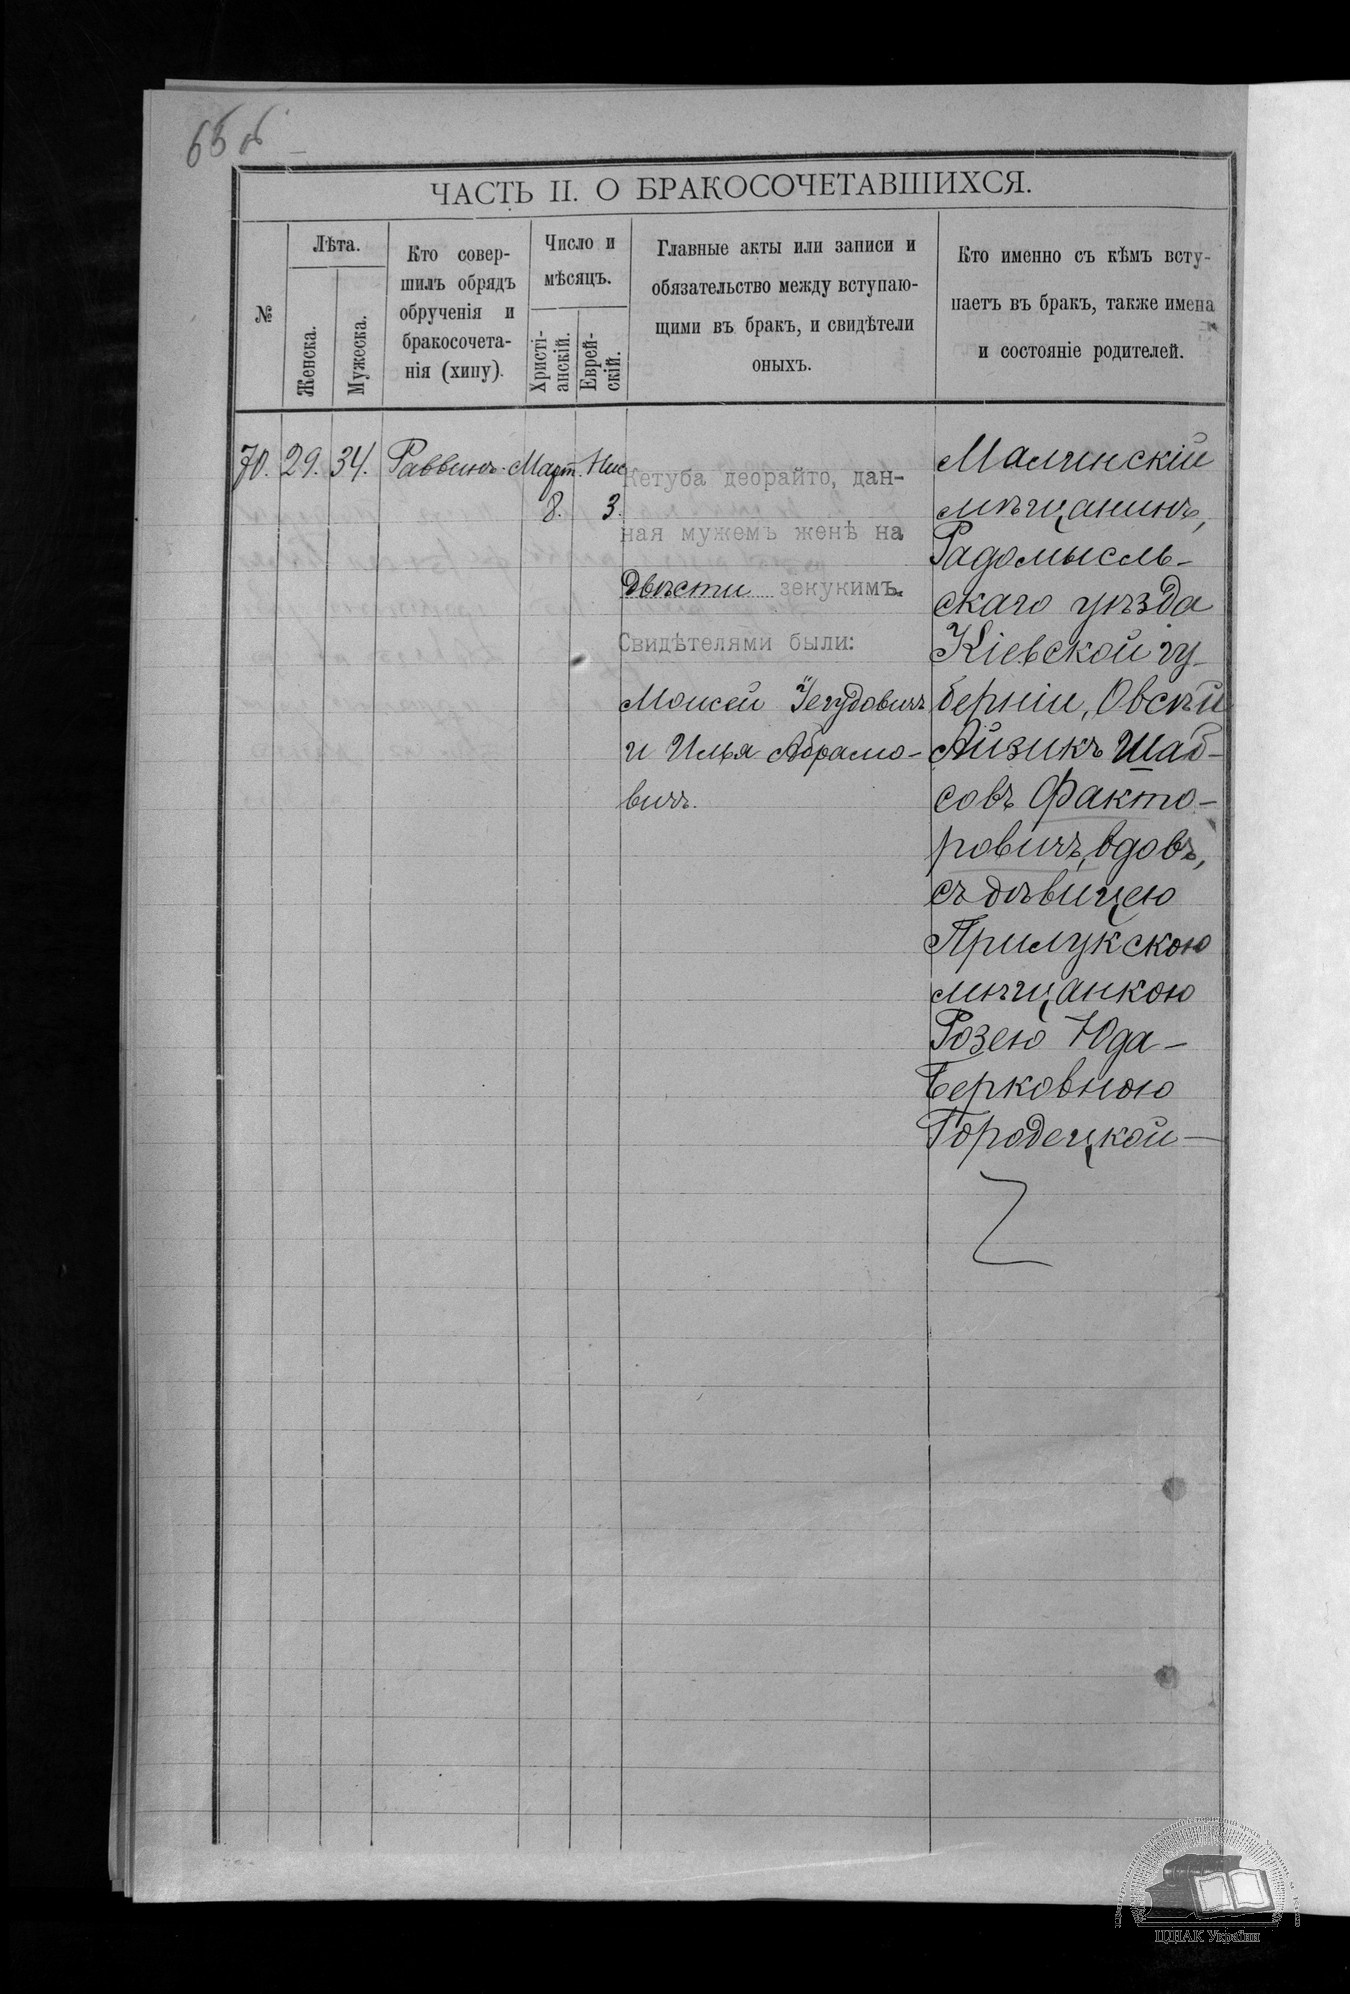 65 об
ЧАСТЬ II. О БРАКОСОЧЕТАВШИХСЯ.
№
Лѣта.
Женска.
Мужеска.
Кто совер-
шилъ обрядъ
обрученія и
бракосочета-
нія (хипу).
Число и
мѣсяцъ.
Христі-
анскій.
Еврей-
скій.
Главные акты или записи и
обязательство между вступаю-
щими въ бракъ, и свидѣтели
оныхъ.
Кто именно съ кѣмъ всту-
паетъ въ бракъ, также имена
и состояніе родителей.
70. 29. 34. Раввинъ. Март. Нис
8. 3.
Кетуба деорайто, дан-
ная мужемъ женѣ на
двѣсти зекукимъ.
Свидѣтелями были:
Моисей Іегудовичъ
и Илья Абрамо-
вичъ.
Малинскій
мѣщанинъ,
Радомысль-
скаго уѣзда
Кіевской гу-
берніи, Овсѣй
Айзикъ Шаб-
совъ Факто-
ровичъ, вдовъ,
съ дѣвицею
Прилукскою
мѣщанкою
Розею Юда-
Берковною
Городецкой—
ЦДІАК України